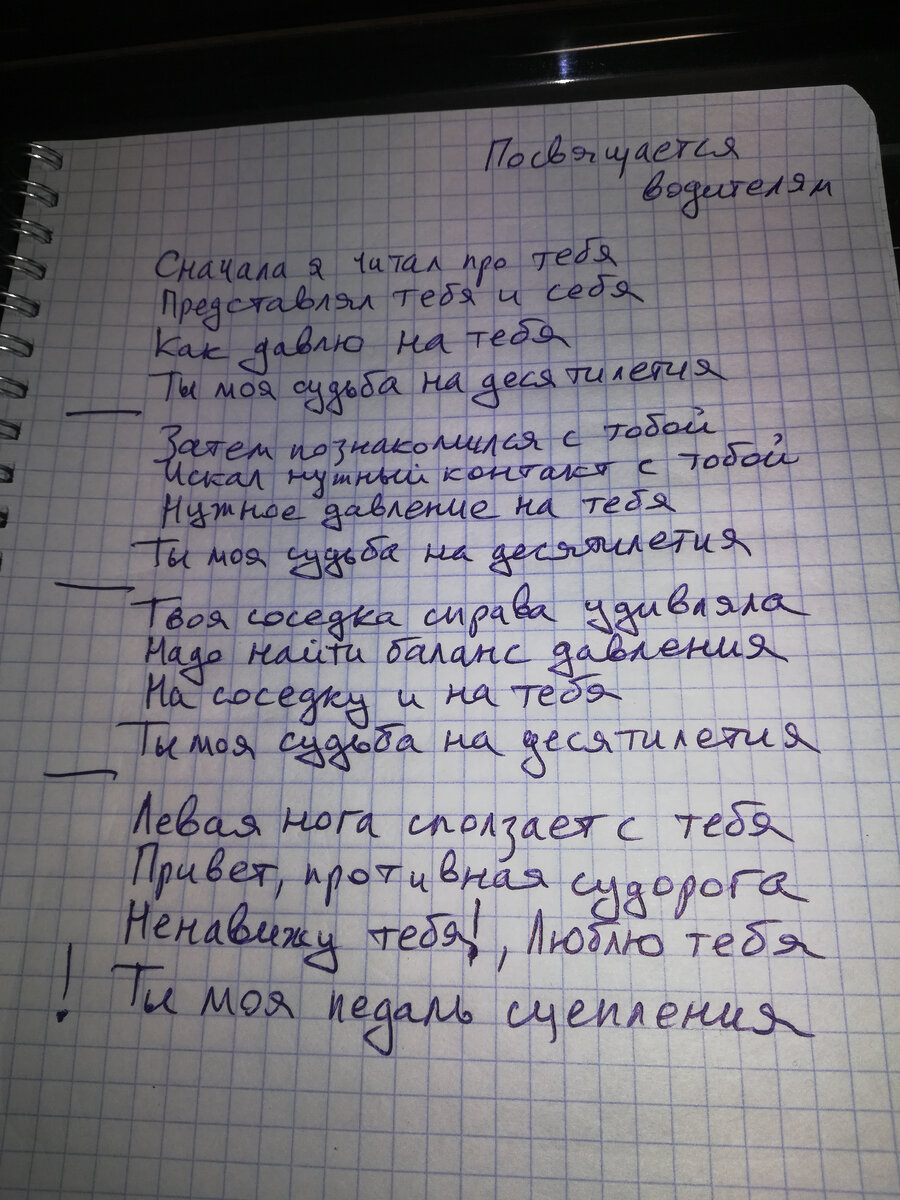 Посвящается
водителям
Сначала я читал про тебя
Представлял тебя и себя
Как давлю на тебя
Ты моя судьба на десятилетия
Затем познакомился с тобой
Искал нужный контакт с тобой
Нужное давление на тебя
Ты моя судьба на десятилетия
Твоя соседка справа удивляла
Надо найти баланс давления
На соседку и на тебя
Ты моя судьба на десятилетия
Левая нога сползает с тебя
Привет, противная судорога
Ненавижу тебя!, Люблю тебя
! Ты моя педаль сцепления